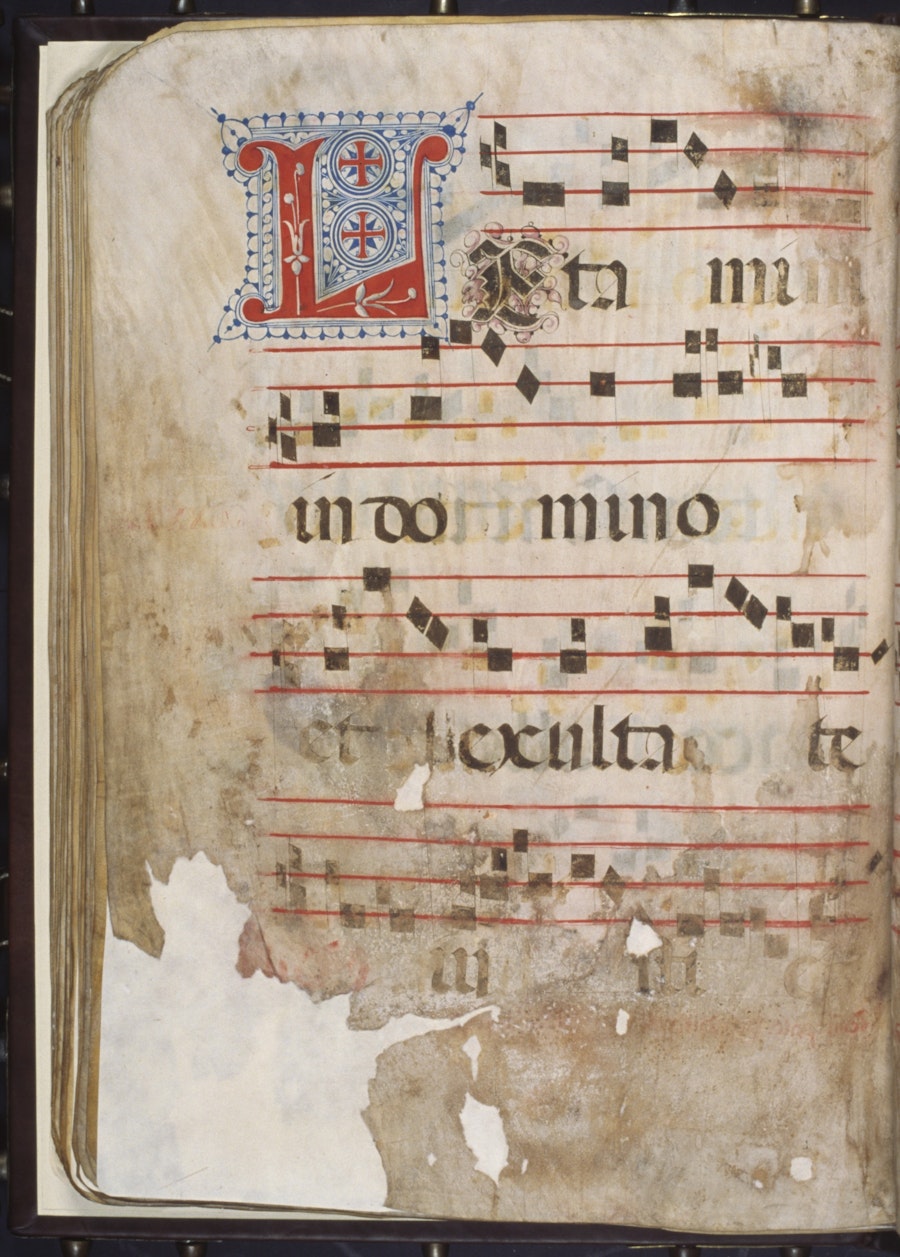 LEta mini
in do mino
et exulta te
iu sti